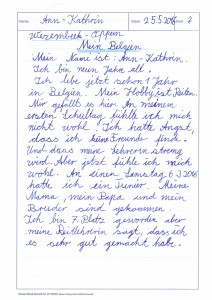 Ann-Kathrin 25.5.2016 2
Wezembeek - Oppem
Mein Belgien
Mein Name ist Ann-Kathrin.
Ich bin neun Jahre alt.
Ich lebe jetzt schon 1 Jahr
in Belgien. Mein Hobby ist Reiten.
Mir gefällt es hier. An meinen
ersten Schultag fühlte ich mich
nicht wohl. Ich hatte Angst,
dass ich keine Freunde finde.
Und dass meine Lehrerin streng
wird. Aber jetzt fühle ich mich
wohl. An einen Samstag 6.3.2016
hatte ich ein Turnier. Meine
Mama, mein Papa und mein
Bruder sind gekommen.
Ich bin 7. Platz geworden aber
meine Reitlehrerin sagt, dass ich
es sehr gut gemacht habe.